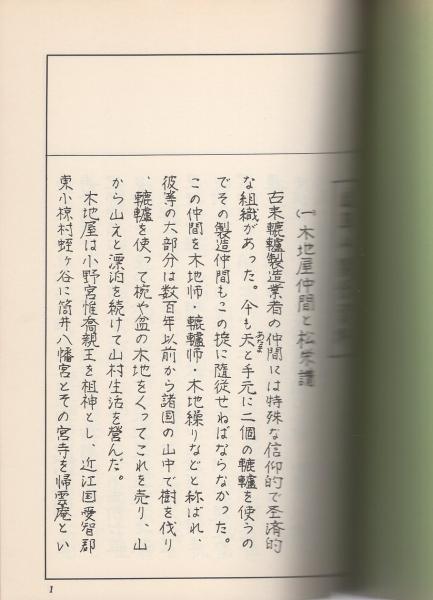 (一)木地屋仲間と松茶講
古来轆轤製造業者の仲間には特殊な信仰的で圣済的
な組織があった。今も天と手元に二個の轆轤を使うの
でその製造仲間もこの掟に隨従せねばならなかった。
この仲間を木地师・轆轤师・木地繰りなどと称ばれ、
彼等の大部分は数百年以前から諸国の山中で樹を伐り
、轆轤を使って椀や盆の木地をくってこれを売り、山
から山えと漂泊を続けて山村生活を営んだ。
木地屋は小野宮惟喬親王を祖神とし、近江国愛智郡
東小椋村蛭ヶ谷に筒井八幡宮とその宮寺を帰雲庵とい
1